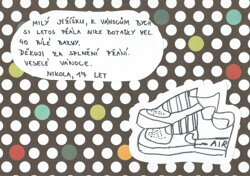 MILÝ JEŽÍŠKU, K VÁNOCŮM BYCH
SI LETOS PŘÁLA NIKE BOTASKY VEL.
40 BÍLÉ BARVY.
DĚKUJI ZA SPLNĚNÍ PŘÁNÍ.
VESELÉ VÁNOCE.
NIKOLA, 14 LET
AIR